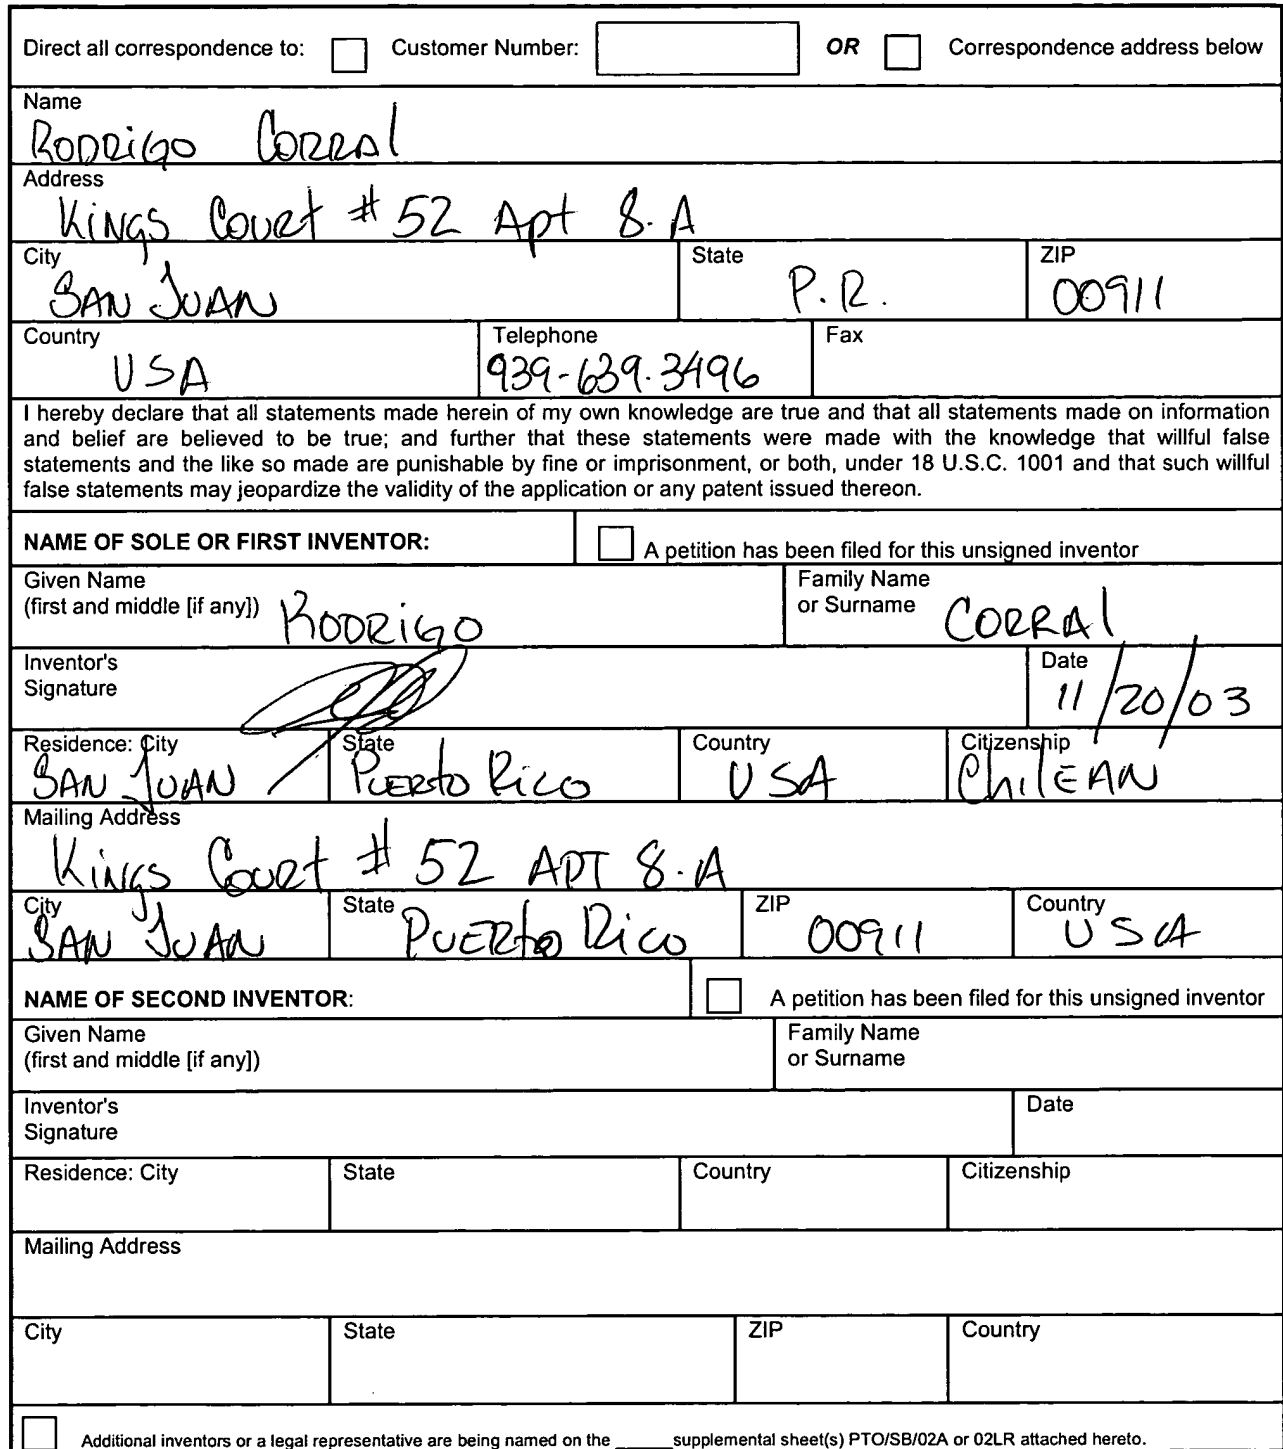 Direct all correspondence to: Customer Number: OR Correspondence address below
Name
RODRIGO CORRAl
Address
KiNGS COURt # 52 Apt 8.A
City State ZIP
SAN JUAN P.R. 00911
Country Telephone Fax
USA 939-639.3496
I hereby declare that all statements made herein of my own knowledge are true and that all statements made on information
and belief are believed to be true; and further that these statements were made with the knowledge that willful false
statements and the like so made are punishable by fine or imprisonment, or both, under 18 U.S.C. 1001 and that such willful
false statements may jeopardize the validity of the application or any patent issued thereon.
NAME OF SOLE OR FIRST INVENTOR: A petition has been filed for this unsigned inventor
Given Name Family Name
(first and middle [if any]) RODRiGO or Surname CORRAl
Inventor's Date
Signature 11/20/03
Residence: City State Country Citizenship
SAN JUAN PUERto Rico USA ChilEAN
Mailing Address
KiNGS COURt # 52 APT 8.A
City State ZIP Country
SAN JUAN PUERto Rico 00911 USA
NAME OF SECOND INVENTOR: A petition has been filed for this unsigned inventor
Given Name Family Name
(first and middle [if any]) or Surname
Inventor's Date
Signature
Residence: City State Country Citizenship
Mailing Address
City State ZIP Country
Additional inventors or a legal representative are being named on the _____ supplemental sheet(s) PTO/SB/02A or 02LR attached hereto.